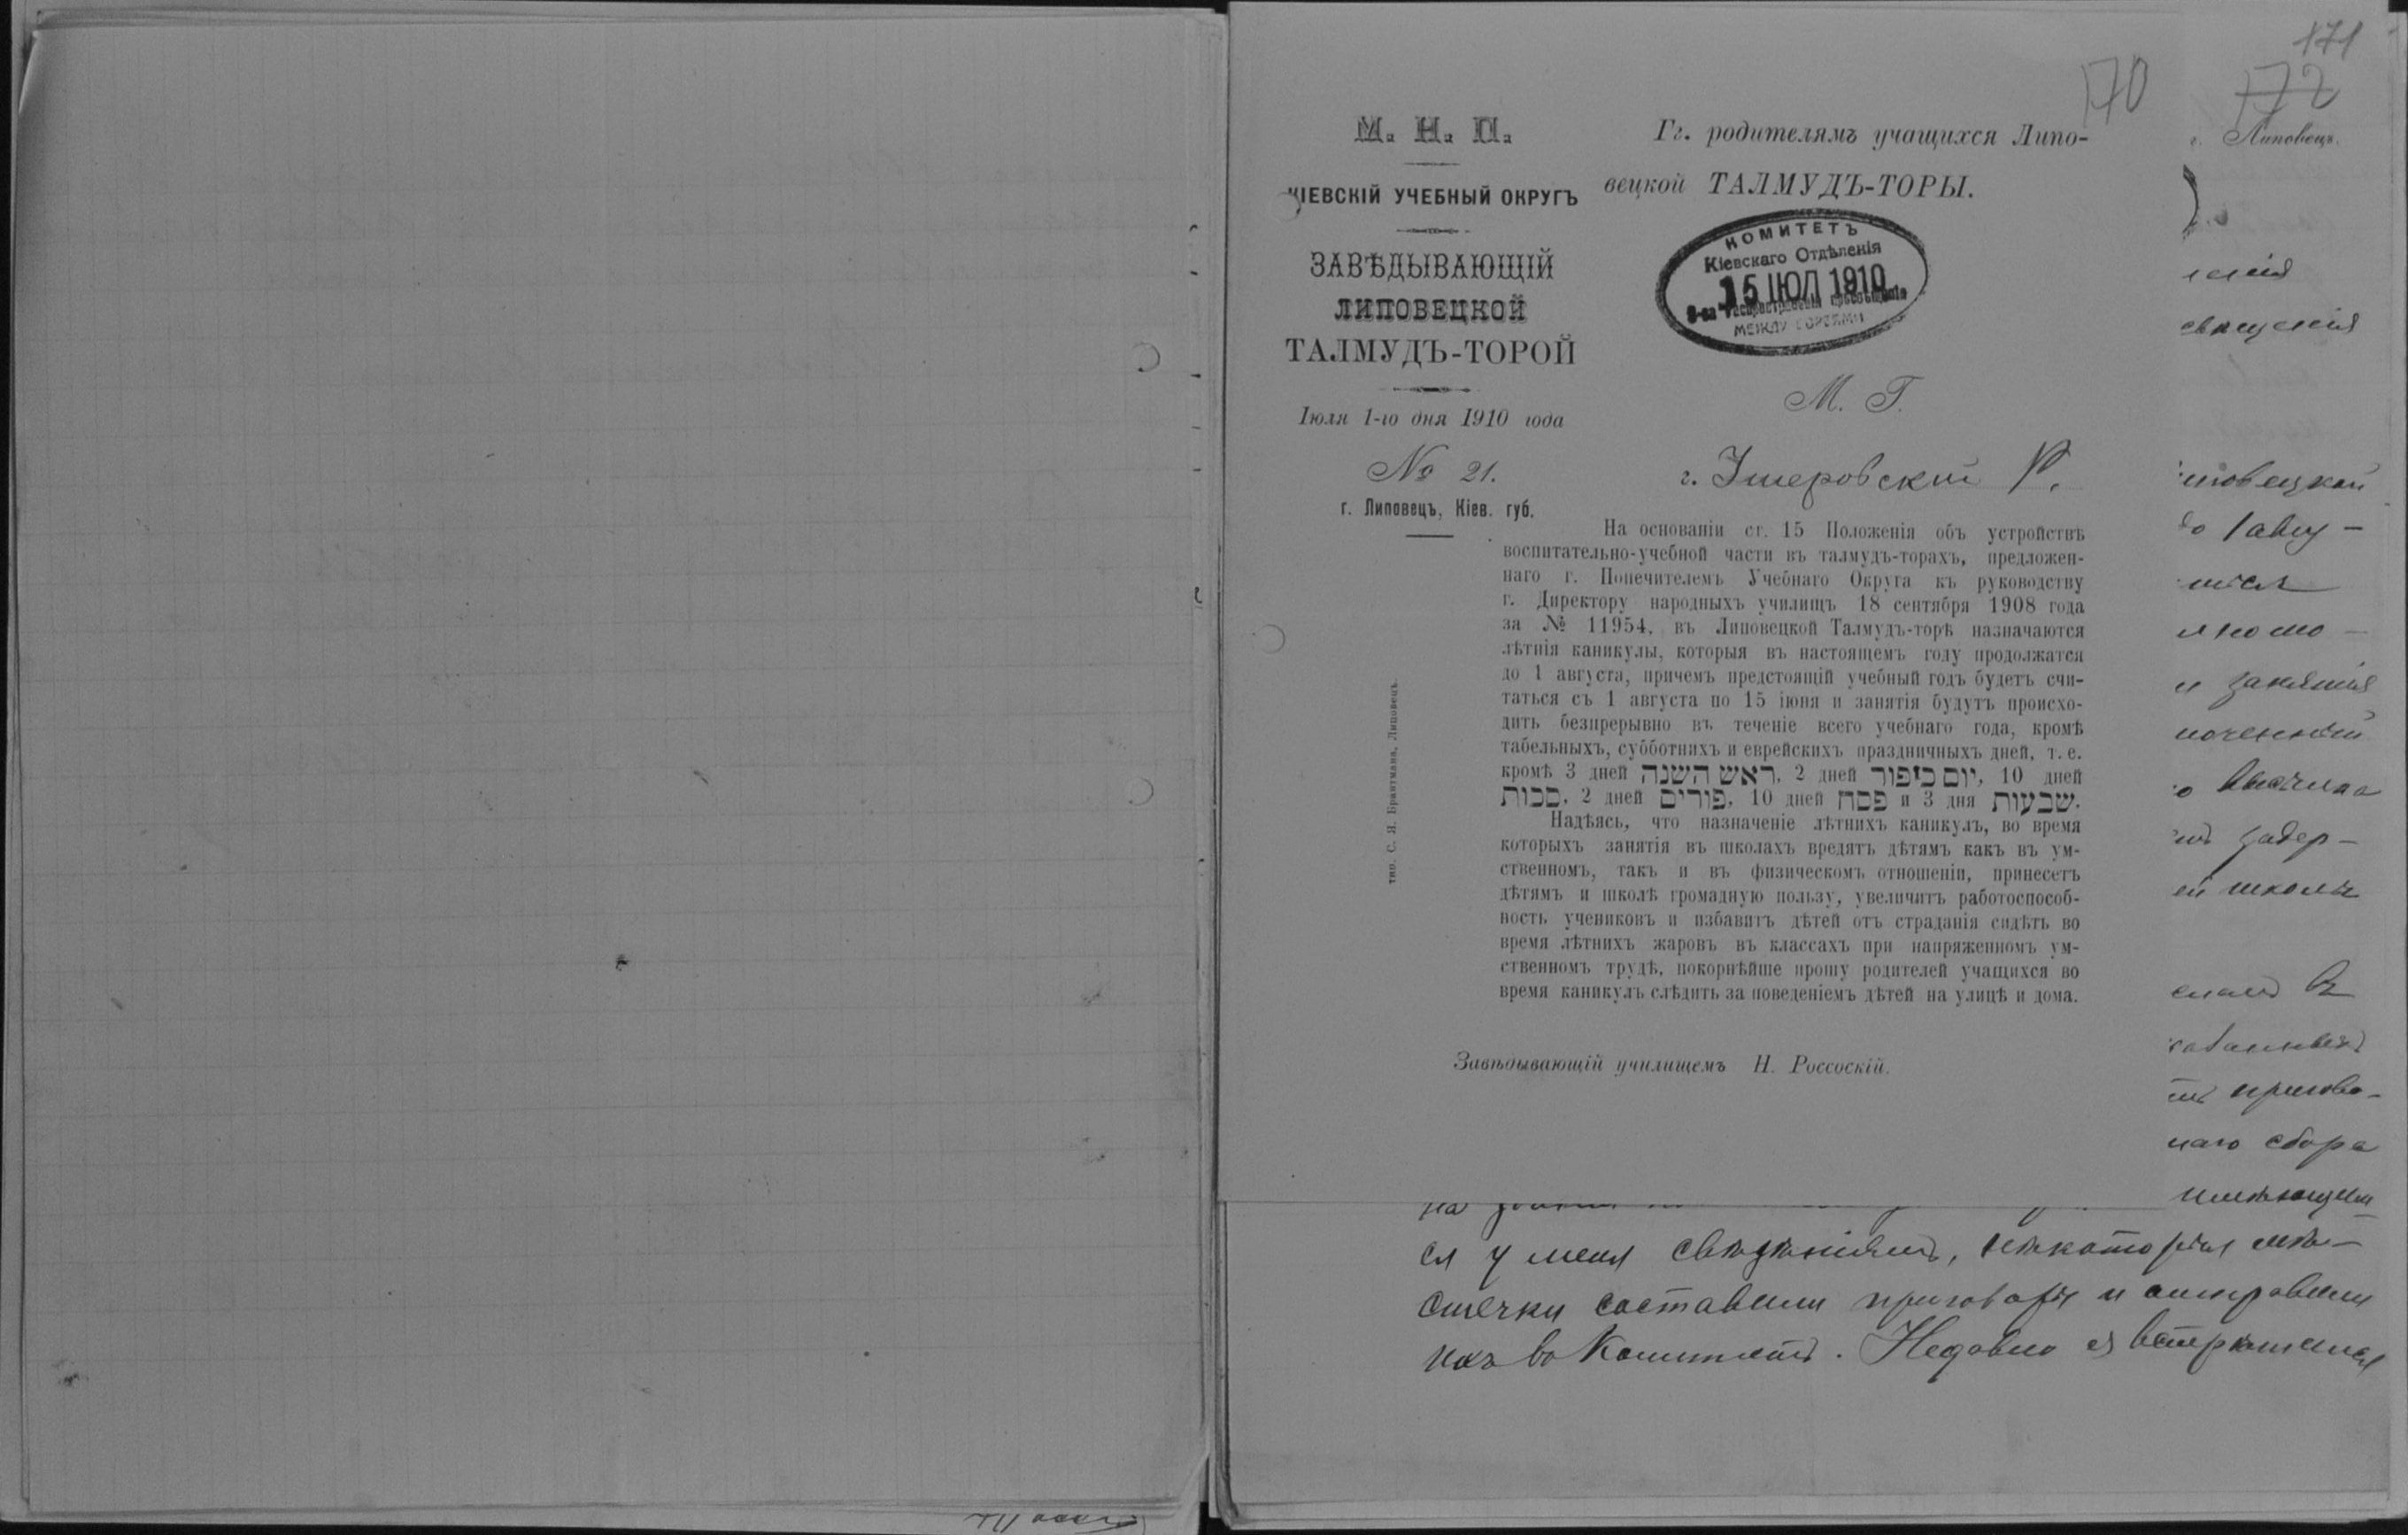 171
170
172
М. Н. П.
КІЕВСКІЙ УЧЕБНЫЙ ОКРУГЪ
ЗАВѢДЫВАЮЩІЙ
ЛИПОВЕЦКОЙ
ТАЛМУДЪ-ТОРОЙ
Іюля 1-го дня 1910 года
№ 21.
г. Липовецъ, Кіев. губ.
Гг. родителямъ учащихся Липо-
вецкой ТАЛМУДЪ-ТОРЫ.
КОМИТЕТЪ
Кіевскаго Отдѣленія
15 ІЮЛ 1910
О-ва Распространенія Просвѣщенія
МЕЖДУ ЕВРЕЯМИ
М. Г.
г.
На основаніи ст. 15 Положенія объ устройствѣ
воспитательно-учебной части въ талмудъ-торахъ, предложен-
наго г. Попечителемъ Учебнаго Округа къ руководству
г. Директору народныхъ училищъ 18 сентября 1908 года
за № 11954, въ Липовецкой Талмудъ-торѣ назначаются
лѣтнія каникулы, которыя въ настоящемъ году продолжатся
до 1 августа, причемъ предстоящій учебный годъ будетъ счи-
таться съ 1 августа по 15 іюня и занятія будутъ происхо-
дить безпрерывно въ теченіе всего учебнаго года, кромѣ
табельныхъ, субботнихъ и еврейскихъ праздничныхъ дней, т. е.
кромѣ 3 дней ראש השנה, 2 дней יום כיפור, 10 дней
סכות, 2 дней פורים, 10 дней פסח и 3 дня שבעות.
Надѣясь, что назначеніе лѣтнихъ каникулъ, во время
которыхъ занятія въ школахъ вредятъ дѣтямъ какъ въ ум-
ственномъ, такъ и въ физическомъ отношеніи, принесетъ
дѣтямъ и школѣ громадную пользу, увеличитъ работоспособ-
ность учениковъ и избавитъ дѣтей отъ страданія сидѣть во
время лѣтнихъ жаровъ въ классахъ при напряженномъ ум-
ственномъ трудѣ, покорнѣйше прошу родителей учащихся во
время каникулъ слѣдить за поведеніемъ дѣтей на улицѣ и дома.
Завѣдывающій училищемъ Н. Россоскій.
тип. С. Я. Брантмана, Липовецъ.
г. Липовецъ.
до 1 авгу-
и занятія
задер-
ей школы
въ
пригово-
наго сбора
имѣющим
ся у меня свѣдѣніямъ, нѣкоторыя мѣ-
стечки составили приговоры и отправили
ихъ въ Комитетъ. Недавно я встрѣтился